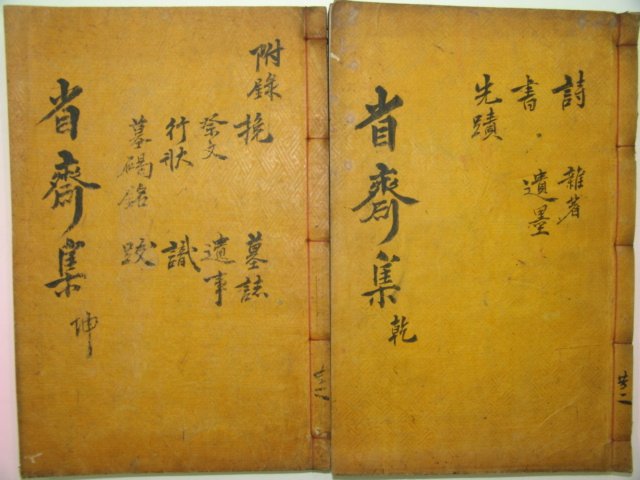 詩 雜著
書 遺墨
先蹟
省齋集 乾
共二
附錄 挽 墓誌
祭文 遺事
行狀 識
墓碣銘 跋
省齋集 坤
共二